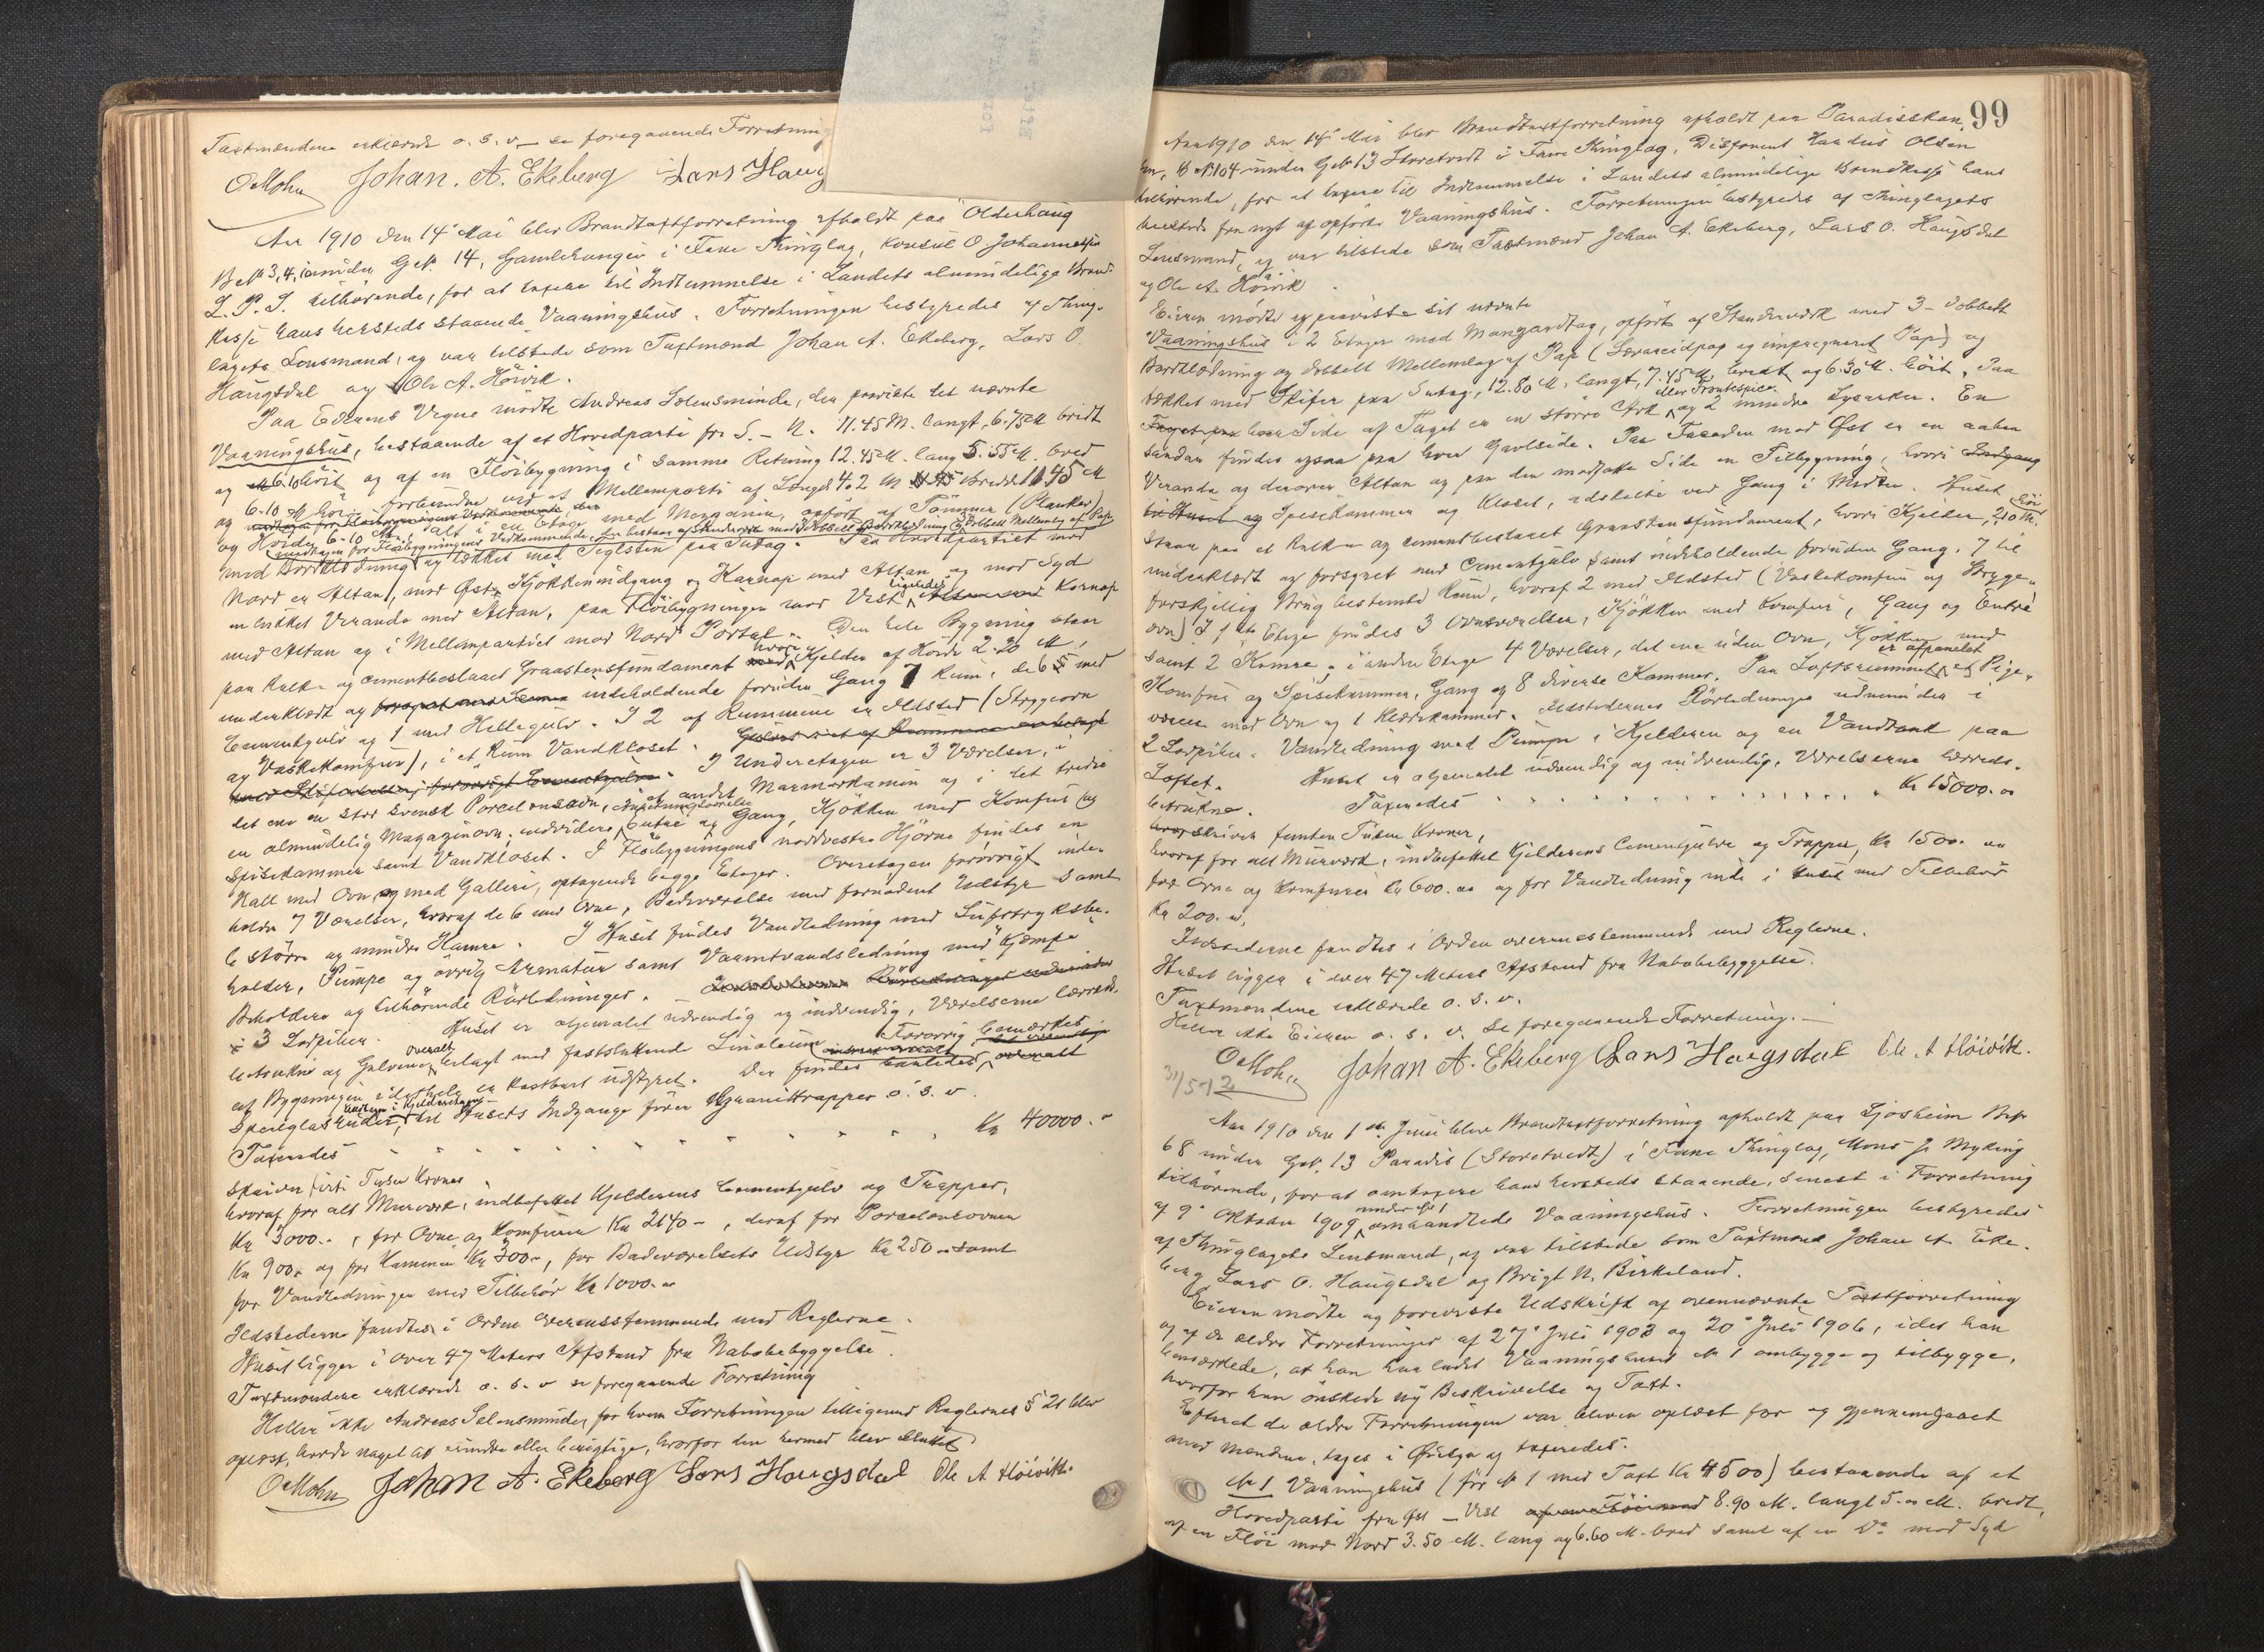 Taxtmændene erklærede o. s. v. se foregaaende Forretning
OMohn Johan. A. Ekeberg Lars Haug
Aar 1910 den 14de Mai blev Brandtaxtforretning afholdt paa Olderhaug
B. No 3, 4, under G. No. 14, Gamlehaugen i Fane Thinglag, Konsul O. Johannessen
tilhørende, for at taxere til Indtemmelse i Landets almindelige Brand-
kasse hans hersteds staaende Vaaningshus. Forretningen bestyredes af Thing-
lagets Lensmand, og var tilstede som Taxtmænd Johan A. Ekeberg, Lars O.
Haugsdal og Ole A. Høivik.
Paa Eierens Vegne mødte Andreas Solensminde, der paaviste det nævnte
Vaaningshus, bestaaende af et Hovedparti fra S. - N. 11.45 M. langt, 6.75 M bredt
og 6.10 høit og af en Fløibygning i samme Retning 12.45 M. lang 5.55 M. bred
og 6.10 M høi, forbundne ved et Mellemparti af Længde 4.2 M Bredde 1.45 M
og Høide 6.10 M. alt i en Etage med Mezanin, opført af Tømmer (Planker)
undtagen for Fløibygningens Vedkommende, der bestaar af Stenderværk med dobbelt Bordklædning og dobbelt Mellemlag af Pap
med Bordklædning og tækket med Teglsten paa Sutag. Paa Hovedpartiet mod
Nord er Altan, mod Øst Kjøkkenindgang og Karnap med Altan og mod Syd
en lukket Veranda med Altan, paa Fløibygningen mod Vest ligeledes Karnap
med Altan og i Mellempartiet mod Nord Portal. Den hele Bygning staar
paa Kalk- og cementbeslaaet Graastensfundament hvori Kjelder af Høide 2.20 M,
underklædt og indeholdende foruden Gang 7 Rum, de 6 med
Cementgulv og 1 med Hellegulv. I 2 af Rummene er Ildsted (Strygeovn
og Vaskekomfur), i et Rum Vandkloset.
I Underetagen er 3 Værelser, i
det ene en stor svensk Porcelænsovn, i et andet Marmorkamin og i det tredie
en almindelig Magasinovn, endvidere Entré og Gang, Kjøkken med Komfur og
Spisekammer samt Vandkloset. I Fløibygningens nordvestre Hjørne findes en
Hall med Ovn og med Galleri, optagende begge Etager. Overetagen forøvrigt inde-
holder 7 Værelser, hvoraf de 6 med Ovne, Badeværelse med fornødent Udstyr samt
6 større og mindre Kamre. I Huset findes Vandledning med Lufttryksbe-
holder, Pumpe og øvrig Armatur samt Varmtvandsledning med Kjæmpe
Beholdere og tilhørende Rørledninger.
i 3 Ludpiber. Huset er oljemalet udvendig og indvendig, Værelserne lærreds-
betrukne og Gulvene overalt belagt med fastsluttende Linoleum. Forøvrig bemærkes
at Bygningen idethele er kostbart udstyret. Der findes overalt
Speilglasruder, undtagen i Kjelderetagen, til Husets Indgange fører Granittrapper o. s. v.
Taxeredes Kr 40000.-
skriver firti Tusen Kroner
hvoraf for alt Murværk, indbefattet Kjelderens Cementgulv og Trapper,
Kr 3000.-, for Ovne og Komfurer Kr 2640.-, deraf for Porcelænsovnen
Kr 900.- og for Kaminen Kr 300.-, for Badeværelsets Udstyr Kr 250.- samt
for Vandledningen med Tilbehør Kr 1000.-
Ildstederne fandtes i Orden overensstemmende med Reglerne.
Huset ligger i over 47 Meters Afstand fra Nabobebyggelse.
Taxtmændene erklærede o. s. v se foregaaende Forretning
Heller ikke Andreas Solensminde, for hvem Forretningen tilligemed Reglernes § 21 blev
oplæst, havde noget at erindre eller berigtige, hvorfor den hermed blev sluttet
OMohn Johan A. Ekeberg Lars Haugsdal Ole A Høivik.
99
Aar 1910 den 14de Mai blev Brandtaxtforretning afholdt paa Paradisskan-
sen, B No 104 under G No 13 Storetvedt i Fane Thinglag, Disponent Olsen
tilhørende, for at taxere til Indtemmelse i Landets almindelige Brandkasse hans
hersteds fra nyt af opførte Vaaningshus. Forretningen bestyredes af Thinglagets
Lensmand, og var tilstede som Taxtmænd Johan A. Ekeberg, Lars O. Haugsdal
og Ole A. Høivik.
Eieren mødte og paaviste sit nævnte
Vaaningshus i 2 Etager med Mansardtag, opført af Stenderværk med 3-dobbelt
Bordklædning og dobbelt Mellemlag af Pap (Læraeidpap og impregneret Pap) og
tækket med Skifer paa Sutag, 12.80 M. langt, 7.45 M. bredt og 6.30 M. høit. Paa
hver Side af Taget er en større Ark eller Frontespice og 2 mindre Lysarker. En
saadan findes ogsaa paa hver Gavlside. Paa Facaden mod Øst er en aaben
Veranda og derover Altan og paa den modsatte Side en Tilbygning, hvori Indgang
til Huset og Spisekammer og Kloset, adskilte ved Gang i Midten. Huset
staar paa et Kalk- og cementbeslaaet Graastensfundament, hvori Kjelder, 2.10 M. høi
underklædt og forsynet med Cementgulv samt indeholdende foruden Gang, 7 til
forskjellig Brug bestemte Rum, hvoraf 2 med Ildsted (Vaskekomfur og Stryge-
ovn) I 1ste Etage findes 3 Ovnsværelser, Kjøkken med Komfur, Gang og Entré
samt 2 Kamre. i anden Etage 4 Værelser, det ene uden Ovn, Kjøkken med
Komfur og Spisekammer, Gang og 8 diverse Kammer. Paa Loftsrummet er afpanelet et Pige-
værelse med Ovn og 1 Klædekammer. Ildstedernes Rørledninger udmunder i
2 Ludpiber. Vandledning med Pumpe i Kjelderen og en Vandtank paa
Loftet. Huset er oljemalet udvendig og indvendig, Værelserne lærreds-
betrukne. Taxeredes Kr 15000.00
skriver femten Tusen Kroner,
hvoraf for alt Murværk, indbefattet Kjelderens Cementgulve og Trapper, Kr 1500.00
for Ovne og Komfurer Kr 600.00 og for Vandledning inde i Huset med Tilbehør
Kr 200.00.
Ildstederne fandtes i Orden overensstemmende med Reglerne.
Huset ligger i over 47 Meters Afstand fra Nabobebyggelse.
Taxtmændene erklærede o. s. v.
Heller ikke Eieren o. s. v. Se foregaaende Forretning.
OMohn Johan A. Ekeberg Lars Haugsdal Ole A Høivik.
31/5-12
Aar 1910 den 1ste Juni blev Brandtaxtforretning afholdt paa Ljosheim B No
68 under G No. 13 Paradis (Storetvedt) i Fane Thinglag, Mons J. Myking
tilhørende, for at omtaxere hans hersteds staaende, senest i Forretning
af 9de Oktober 1909 under No 1 omhandlede Vaaningshus. Forretningen bestyredes
af Thinglagets Lensmand, og var tilstede som Taxtmænd Johan A. Eke-
berg, Lars O. Haugsdal og Brigt N. Birkeland.
Eieren mødte og foreviste Udskrift af ovennævnte Taxtforretning
og af de ældre Forretninger af 27de Juli 1903 og 20de Juli 1906, idet han
bemærkede, at han har ladet Vaaningshuset No 1 ombygge og tilbygge,
hvorfor han ønskede ny Beskrivelse og Taxt.
Efterat de ældre Forretninger var bleven oplæst for og gjennemgaaet
med Mændene, toges i Øiesyn og taxeredes.
No 1 Vaaningshus (før No 1 med Taxt Kr 4500) bestaaende af et
Hovedparti fra Øst - Vest 8.90 M. langt 5.00 M. bredt,
af en Fløi mod Nord 3.50 M. lang og 6.60 M. bred samt af en Do mod Syd